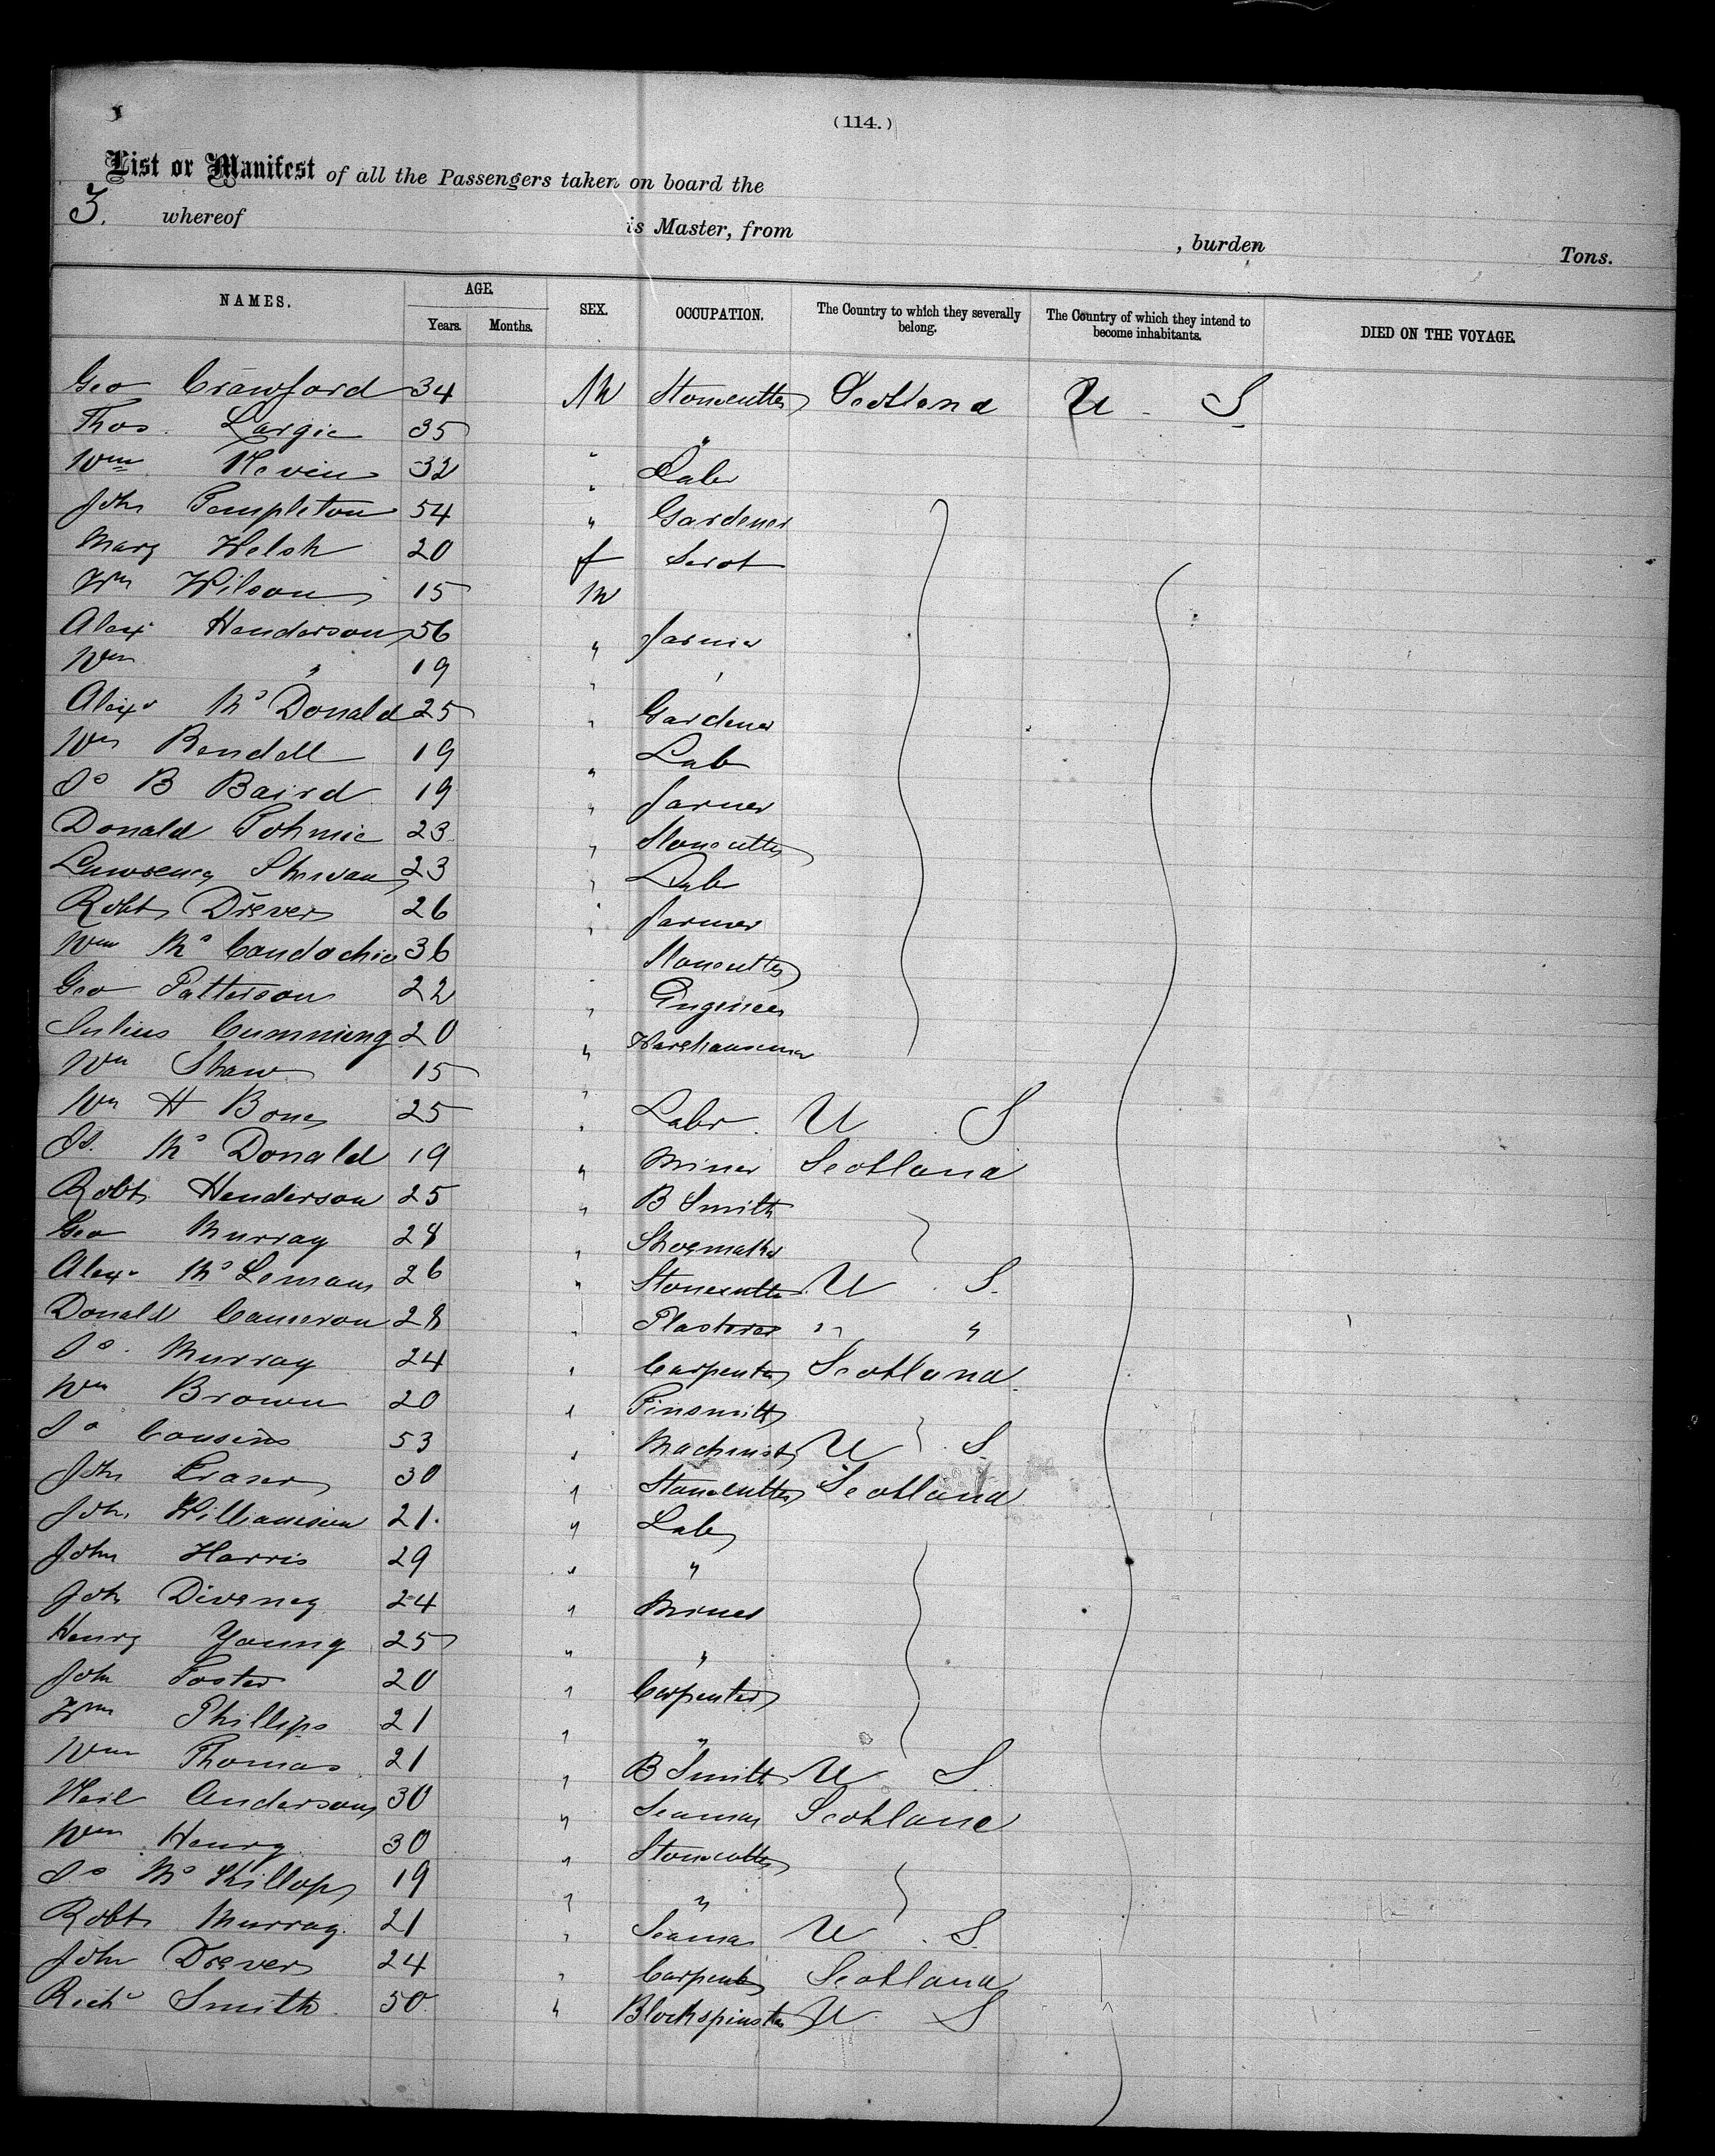 (114.)
List or Manifest of all the Passengers taken on board the
3. whereof is Master, from , burden Tons.
NAMES. AGE. Years. Months. SEX. OCCUPATION. The Country to which they severally belong. The Country of which they intend to become inhabitants. DIED ON THE VOYAGE.
Geo Crawford 34 M Stonecutter Scotland U S
Thos. Largie 35 " "
Wm Nevin 32 " Labr
John Templeton 54 " Gardener
Marg Welsh 20 f Servt
Wm Wilson 15 M
Alexr Henderson 56 " farmer
Wm " 19 " "
Alexr Mc Donald 25 " Gardener
Wm Rendell 19 " Lab
Js B Baird 19 " farmer
Donald 23 " Stonecutter
23 " Lab
Robt Drever 26 " farmer
Wm Mc 36 " Stonecutter
Geo Patterson 22 " Engineer
Julius Cumming 20 " Warehouseman
Wm Shaw 15 "
Wm H Bone 25 " Labr U S
Js. Mc Donald 19 " Miner Scotland
Robt Henderson 25 " B Smith
Geo Murray 28 " Shoemaker
Alexr Mc Leman 26 " Stonecutter U S
Donald Cameron 28 " Plasterer " "
Js. Murray 24 " Carpenter Scotland
Wm Brown 20 " Tinsmith
Js Cousins 53 " Machinist U S
John Fraser 30 " Stonecutter Scotland
John Williamson 21 " Lab
John Harris 29 " "
John Diveney 24 " Miner
Henry Young 25 " "
John Foster 20 " Carpenter
Wm Phillips 21 " "
Wm Thomas 21 " B Smith U S
Neil Anderson 30 " Seaman Scotland
Wm Henry 30 " Stonecutter
Js Mc Killop 19 " "
Robt Murray 21 " Seaman U S
John Drever 24 " Carpenter Scotland
Richd Smith 50 " U S